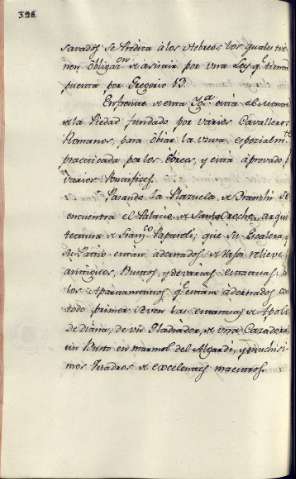 396
savados se Predica à los Hebreos los quales tie-
nen obligaz.on de asistir por una Ley q.e tienen
puesta por Gregorio 13.
Enfrente de esta Yg.a està el
de la Piedad fundado por varios Cavalleros
Romanos, para obiar la usura especialm.te
practicada por los Ebreos, y està aprovado p.r
varios Pontifices.
Pasando la Plazuela de Branchi se
encuentra el Palacio de Santa Croche, arqui
tectura de Fran.co Paparele, que su Escalera,
y Patio estàn adornados de Vajo relieves
antiguos, Bustos, y de varias estatuas, y
los Apartamentos q.e estàn adornados con
todo primor se ven las estatuas de Apolo
de Diana, de un Gladiador, de una Cazadora
un Busto en marmol del Algardi, y muchisi-
mos Quadros de excelentes maestros.